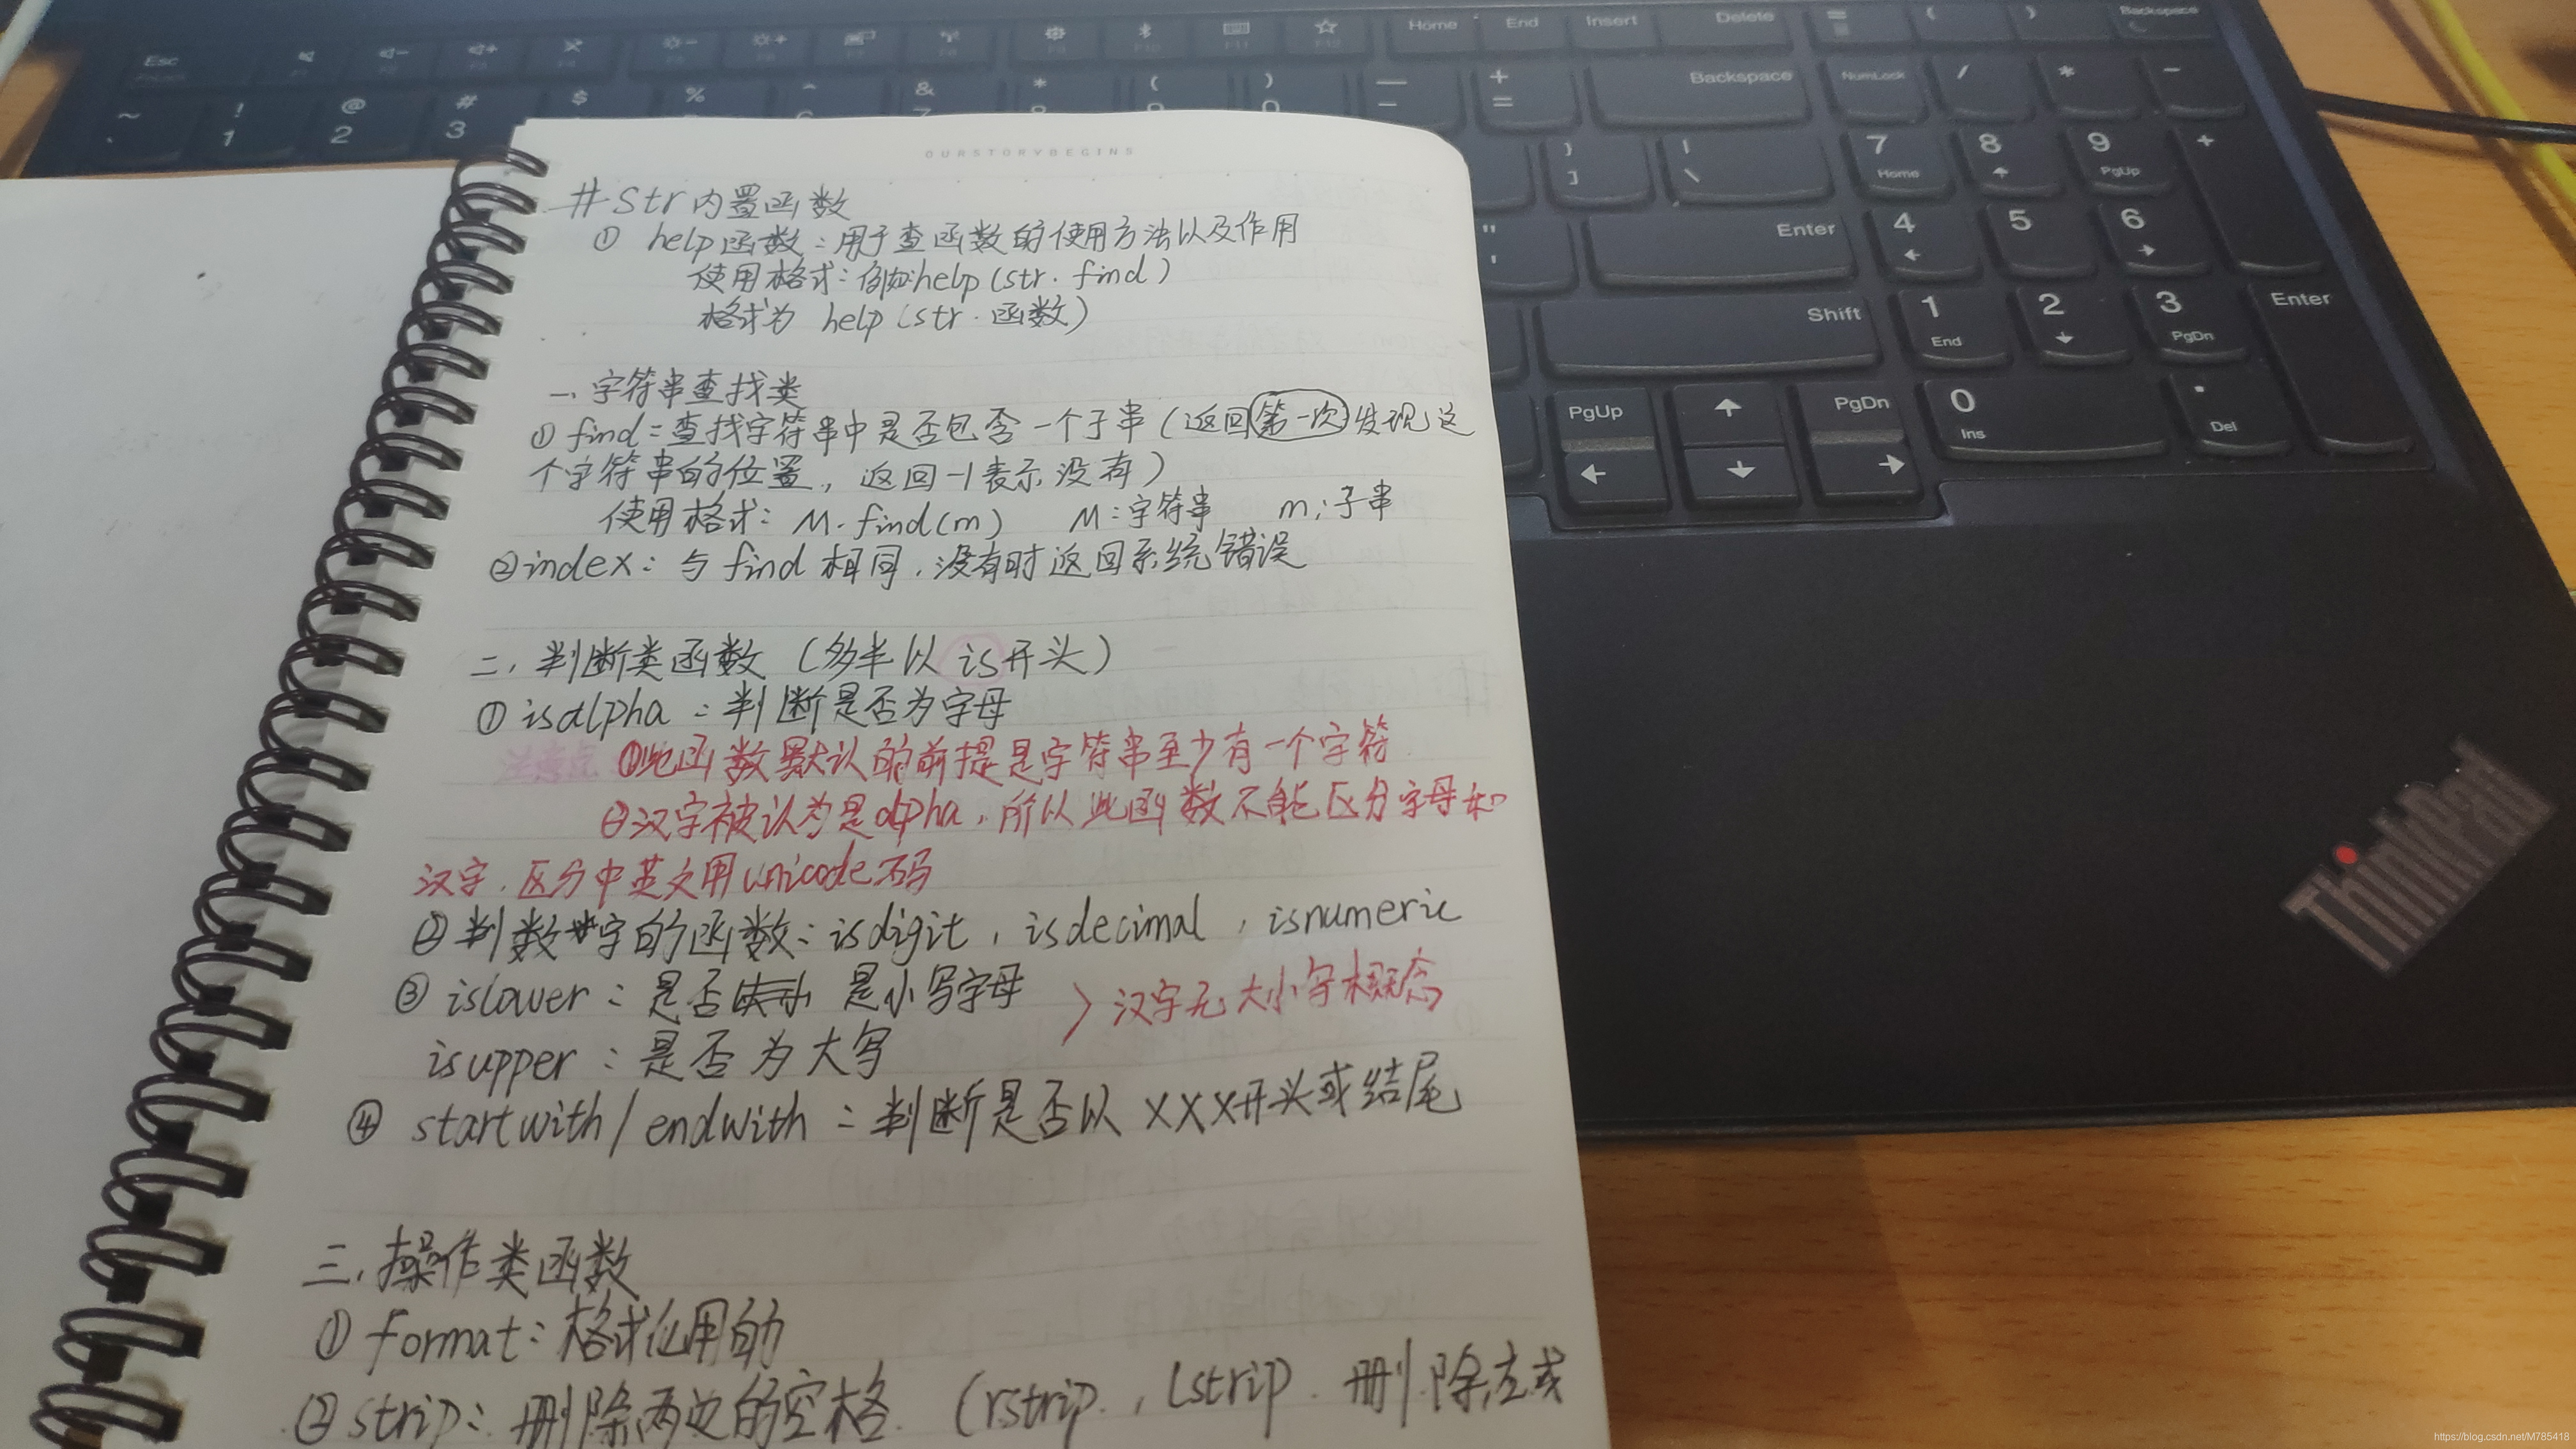 OURSTORYBEGINS
#Str内置函数
① help函数：用于查函数的使用方法以及作用
使用格式：例如：help(str.find)
格式为 help(str.函数)
一、字符串查找类
① find：查找字符串中是否包含一个子串(返回第一次发现这
个字符串的位置，返回-1表示没有)
使用格式：M.find(m) M：字符串 m：子串
②index：与find相同，没有时返回系统错误
二、判断类函数(多半以is开头)
① isalpha：判断是否为字母
注意点 ①此函数默认的前提是字符串至少有一个字符
②汉字被认为是alpha，所以此函数不能区分字母和
汉字，区分中英文用unicode码
②判数字的函数：isdigit，isdecimal，isnumeric
③ islower：是否 是小写字母
> 汉字无大小写概念
isupper：是否为大写
④ startwith/endwith：判断是否以XXX开头或结尾
三、操作类函数
① format：格式化用的
②strip：删除两边的空格.(rstrip.，lstrip.删除左或
Esc
Home End Insert Delete Backspace
~ ! @ # $ % ^ & * ( ) — +
1 2 3 - =
Backspace NumLock / * -
} ] | \
7 Home 8 9 PgUp +
" '
Enter
4 5 6
Shift
1 End 2 3 PgDn Enter
PgUp PgDn
0 Ins . Del
ThinkPad
https://blog.csdn.net/M785418